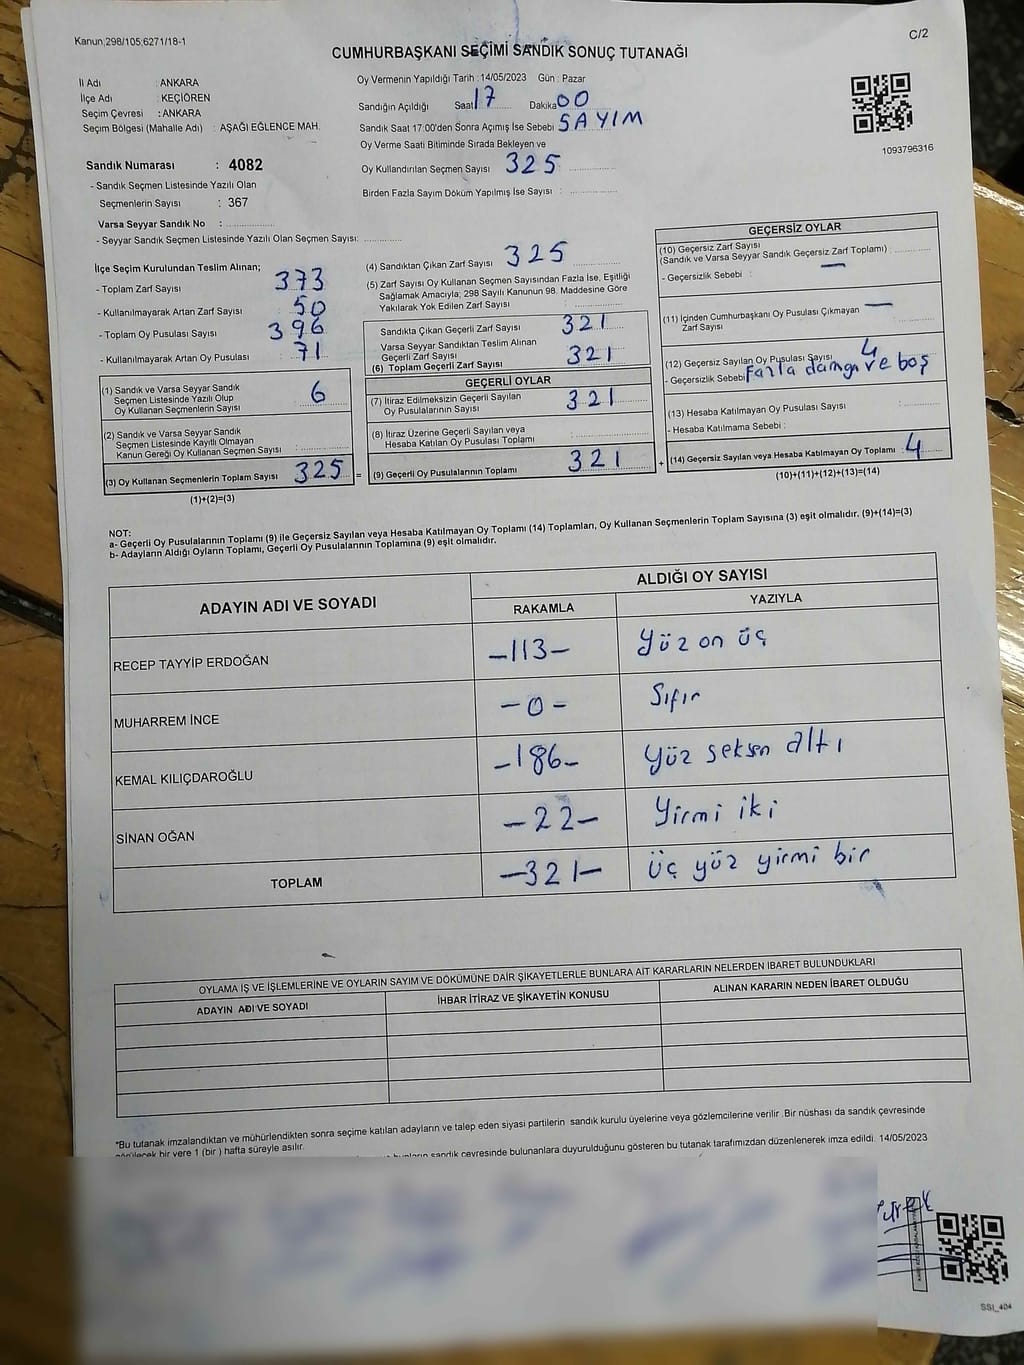 Kanun;298/105;6271/18-1
C/2
CUMHURBAŞKANI SEÇİMİ SANDIK SONUÇ TUTANAĞI
İl Adı : ANKARA
İlçe Adı : KEÇİÖREN
Seçim Çevresi : ANKARA
Seçim Bölgesi (Mahalle Adı) : AŞAĞI EĞLENCE MAH.
Oy Vermenin Yapıldığı Tarih :14/05/2023 Gün : Pazar
Sandığın Açıldığı Saat 17 Dakika 00
Sandık Saat 17:00'den Sonra Açımış İse Sebebi SAYIM
Oy Verme Saati Bitiminde Sırada Bekleyen ve
Oy Kullandırılan Seçmen Sayısı : 325
Birden Fazla Sayım Döküm Yapılmış İse Sayısı :
1093796316
Sandık Numarası : 4082
- Sandık Seçmen Listesinde Yazılı Olan
Seçmenlerin Sayısı : 367
Varsa Seyyar Sandık No :
- Seyyar Sandık Seçmen Listesinde Yazılı Olan Seçmen Sayısı:
İlçe Seçim Kurulundan Teslim Alınan;
- Toplam Zarf Sayısı : 373
- Kullanılmayarak Artan Zarf Sayısı : 50
- Toplam Oy Pusulası Sayısı : 396
- Kullanılmayarak Artan Oy Pusulası : 71
(1) Sandık ve Varsa Seyyar Sandık
Seçmen Listesinde Yazılı Olup
Oy Kullanan Seçmenlerin Sayısı : 6
(2) Sandık ve Varsa Seyyar Sandık
Seçmen Listesinde Kayıtlı Olmayan
Kanun Gereği Oy Kullanan Seçmen Sayısı :
(3) Oy Kullanan Seçmenlerin Toplam Sayısı 325 =
(1)+(2)=(3)
(4) Sandıktan Çıkan Zarf Sayısı : 325
(5) Zarf Sayısı Oy Kullanan Seçmen Sayısından Fazla İse, Eşitliği
Sağlamak Amacıyla; 298 Sayılı Kanunun 98. Maddesine Göre
Yakılarak Yok Edilen Zarf Sayısı :
Sandıkta Çıkan Geçerli Zarf Sayısı : 321
Varsa Seyyar Sandıktan Teslim Alınan
Geçerli Zarf Sayısı
(6) Toplam Geçerli Zarf Sayısı : 321
GEÇERLİ OYLAR
(7) İtiraz Edilmeksizin Geçerli Sayılan
Oy Pusulalarının Sayısı : 321
(8) İtiraz Üzerine Geçerli Sayılan veya
Hesaba Katılan Oy Pusulası Toplamı :
(9) Geçerli Oy Pusulalarının Toplamı : 321 +
GEÇERSİZ OYLAR
(10) Geçersiz Zarf Sayısı
(Sandık ve Varsa Seyyar Sandık Geçersiz Zarf Toplamı) :
- Geçersizlik Sebebi : —
(11) İçinden Cumhurbaşkanı Oy Pusulası Çıkmayan
Zarf Sayısı : —
(12) Geçersiz Sayılan Oy Pusulası Sayısı : 4
- Geçersizlik Sebebi Fazla damga ve boş
(13) Hesaba Katılmayan Oy Pusulası Sayısı :
- Hesaba Katılmama Sebebi :
(14) Geçersiz Sayılan veya Hesaba Katılmayan Oy Toplamı : 4
(10)+(11)+(12)+(13)=(14)
NOT:
a- Geçerli Oy Pusulalarının Toplamı (9) ile Geçersiz Sayılan veya Hesaba Katılmayan Oy Toplamı (14) Toplamları, Oy Kullanan Seçmenlerin Toplam Sayısına (3) eşit olmalıdır. (9)+(14)=(3)
b- Adayların Aldığı Oyların Toplamı, Geçerli Oy Pusulalarının Toplamına (9) eşit olmalıdır.
ADAYIN ADI VE SOYADI ALDIĞI OY SAYISI
RAKAMLA YAZIYLA
RECEP TAYYİP ERDOĞAN -113- Yüz on üç
MUHARREM İNCE -0- Sıfır
KEMAL KILIÇDAROĞLU -186- Yüz seksen altı
SİNAN OĞAN -22- Yirmi iki
TOPLAM -321- Üç yüz yirmi bir
OYLAMA İŞ VE İŞLEMLERİNE VE OYLARIN SAYIM VE DÖKÜMÜNE DAİR ŞİKAYETLERLE BUNLARA AİT KARARLARIN NELERDEN İBARET BULUNDUKLARI
ADAYIN ADI VE SOYADI İHBAR İTİRAZ VE ŞİKAYETİN KONUSU ALINAN KARARIN NEDEN İBARET OLDUĞU
*Bu tutanak imzalandıktan ve mühürlendikten sonra seçime katılan adayların ve talep eden siyasi partilerin sandık kurulu üyelerine veya gözlemcilerine verilir .Bir nüshası da sandık çevresinde
görülecek bir yere 1 (bir ) hafta süreyle asılır.
sandık çevresinde bulunanlara duyurulduğunu gösteren bu tutanak tarafımızdan düzenlenerek imza edildi. 14/05/2023
SSI_404